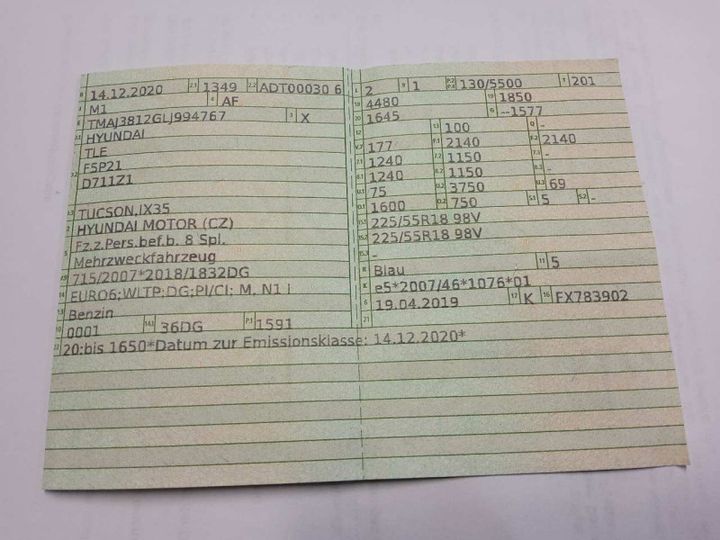 B 14.12.2020 2.1 1349 2.2 ADT00030 6
J M1 4 AF
E TMAJ3812GLJ994767 3 X
D.1 HYUNDAI
D.2 TLE
F5P21
D711Z1
D.3 TUCSON,IX35
2 HYUNDAI MOTOR (CZ)
5 Fz.z.Pers.bef.b. 8 Spl.
Mehrzweckfahrzeug
V.9 715/2007*2018/1832DG
14 EURO6;WLTP;DG;PI/CI; M, N1 I
P.3 Benzin
10 0001 14.1 36DG P.1 1591
22 20:bis 1650*Datum zur Emissionsklasse: 14.12.2020*
L 2 9 1 P.2 P.4 130/5500 T 201
18 4480 19 1850
20 1645 G --1577
13 100 Q -
V.7 177 F.1 2140 F.2 2140
7.1 1240 7.2 1150 7.3 -
8.1 1240 8.2 1150 8.3 -
U.1 75 U.2 3750 U.3 69
O.1 1600 O.2 750 S.1 5 S.2 -
15.1 225/55R18 98V
15.2 225/55R18 98V
15.3 -
R Blau 11 5
K e5*2007/46*1076*01
6 19.04.2019 17 K 16 FX783902
21